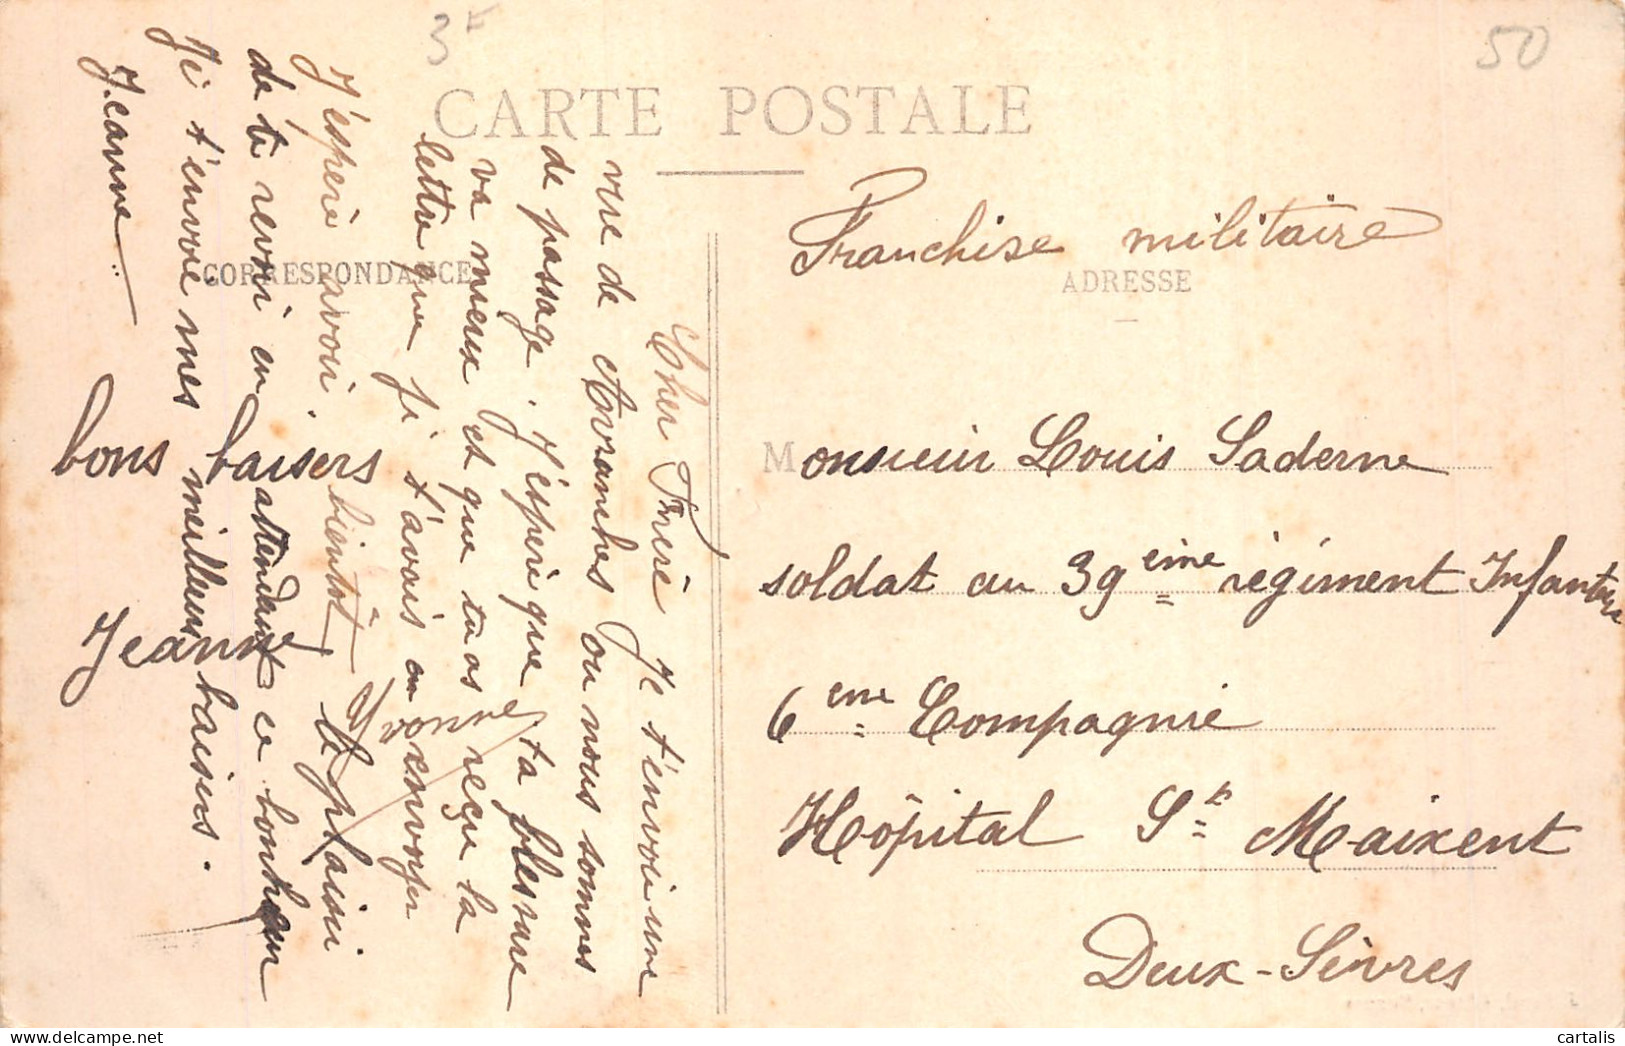 3F
50
CARTE POSTALE
CORRESPONDANCE
ADRESSE
Franchise militaire
Monsieur Louis Saderne
soldat au 39ème régiment Infanterie
6ème Compagnie
Hôpital St Maixent
Deux-Sèvres
Cher Frère Je t'envoie une
vue de Avranches ou nous sommes
de passage. J'espère que ta blessure
va mieux et que tu as reçu la
lettre que je t'avais envoyer
J'espère avoir bientôt le plaisir
de te revoir en attendant ce bonheur
Je t'envoie mes meilleurs baisers.
Jeanne
bons baisers
Jeanne
Yvonne
cartalis